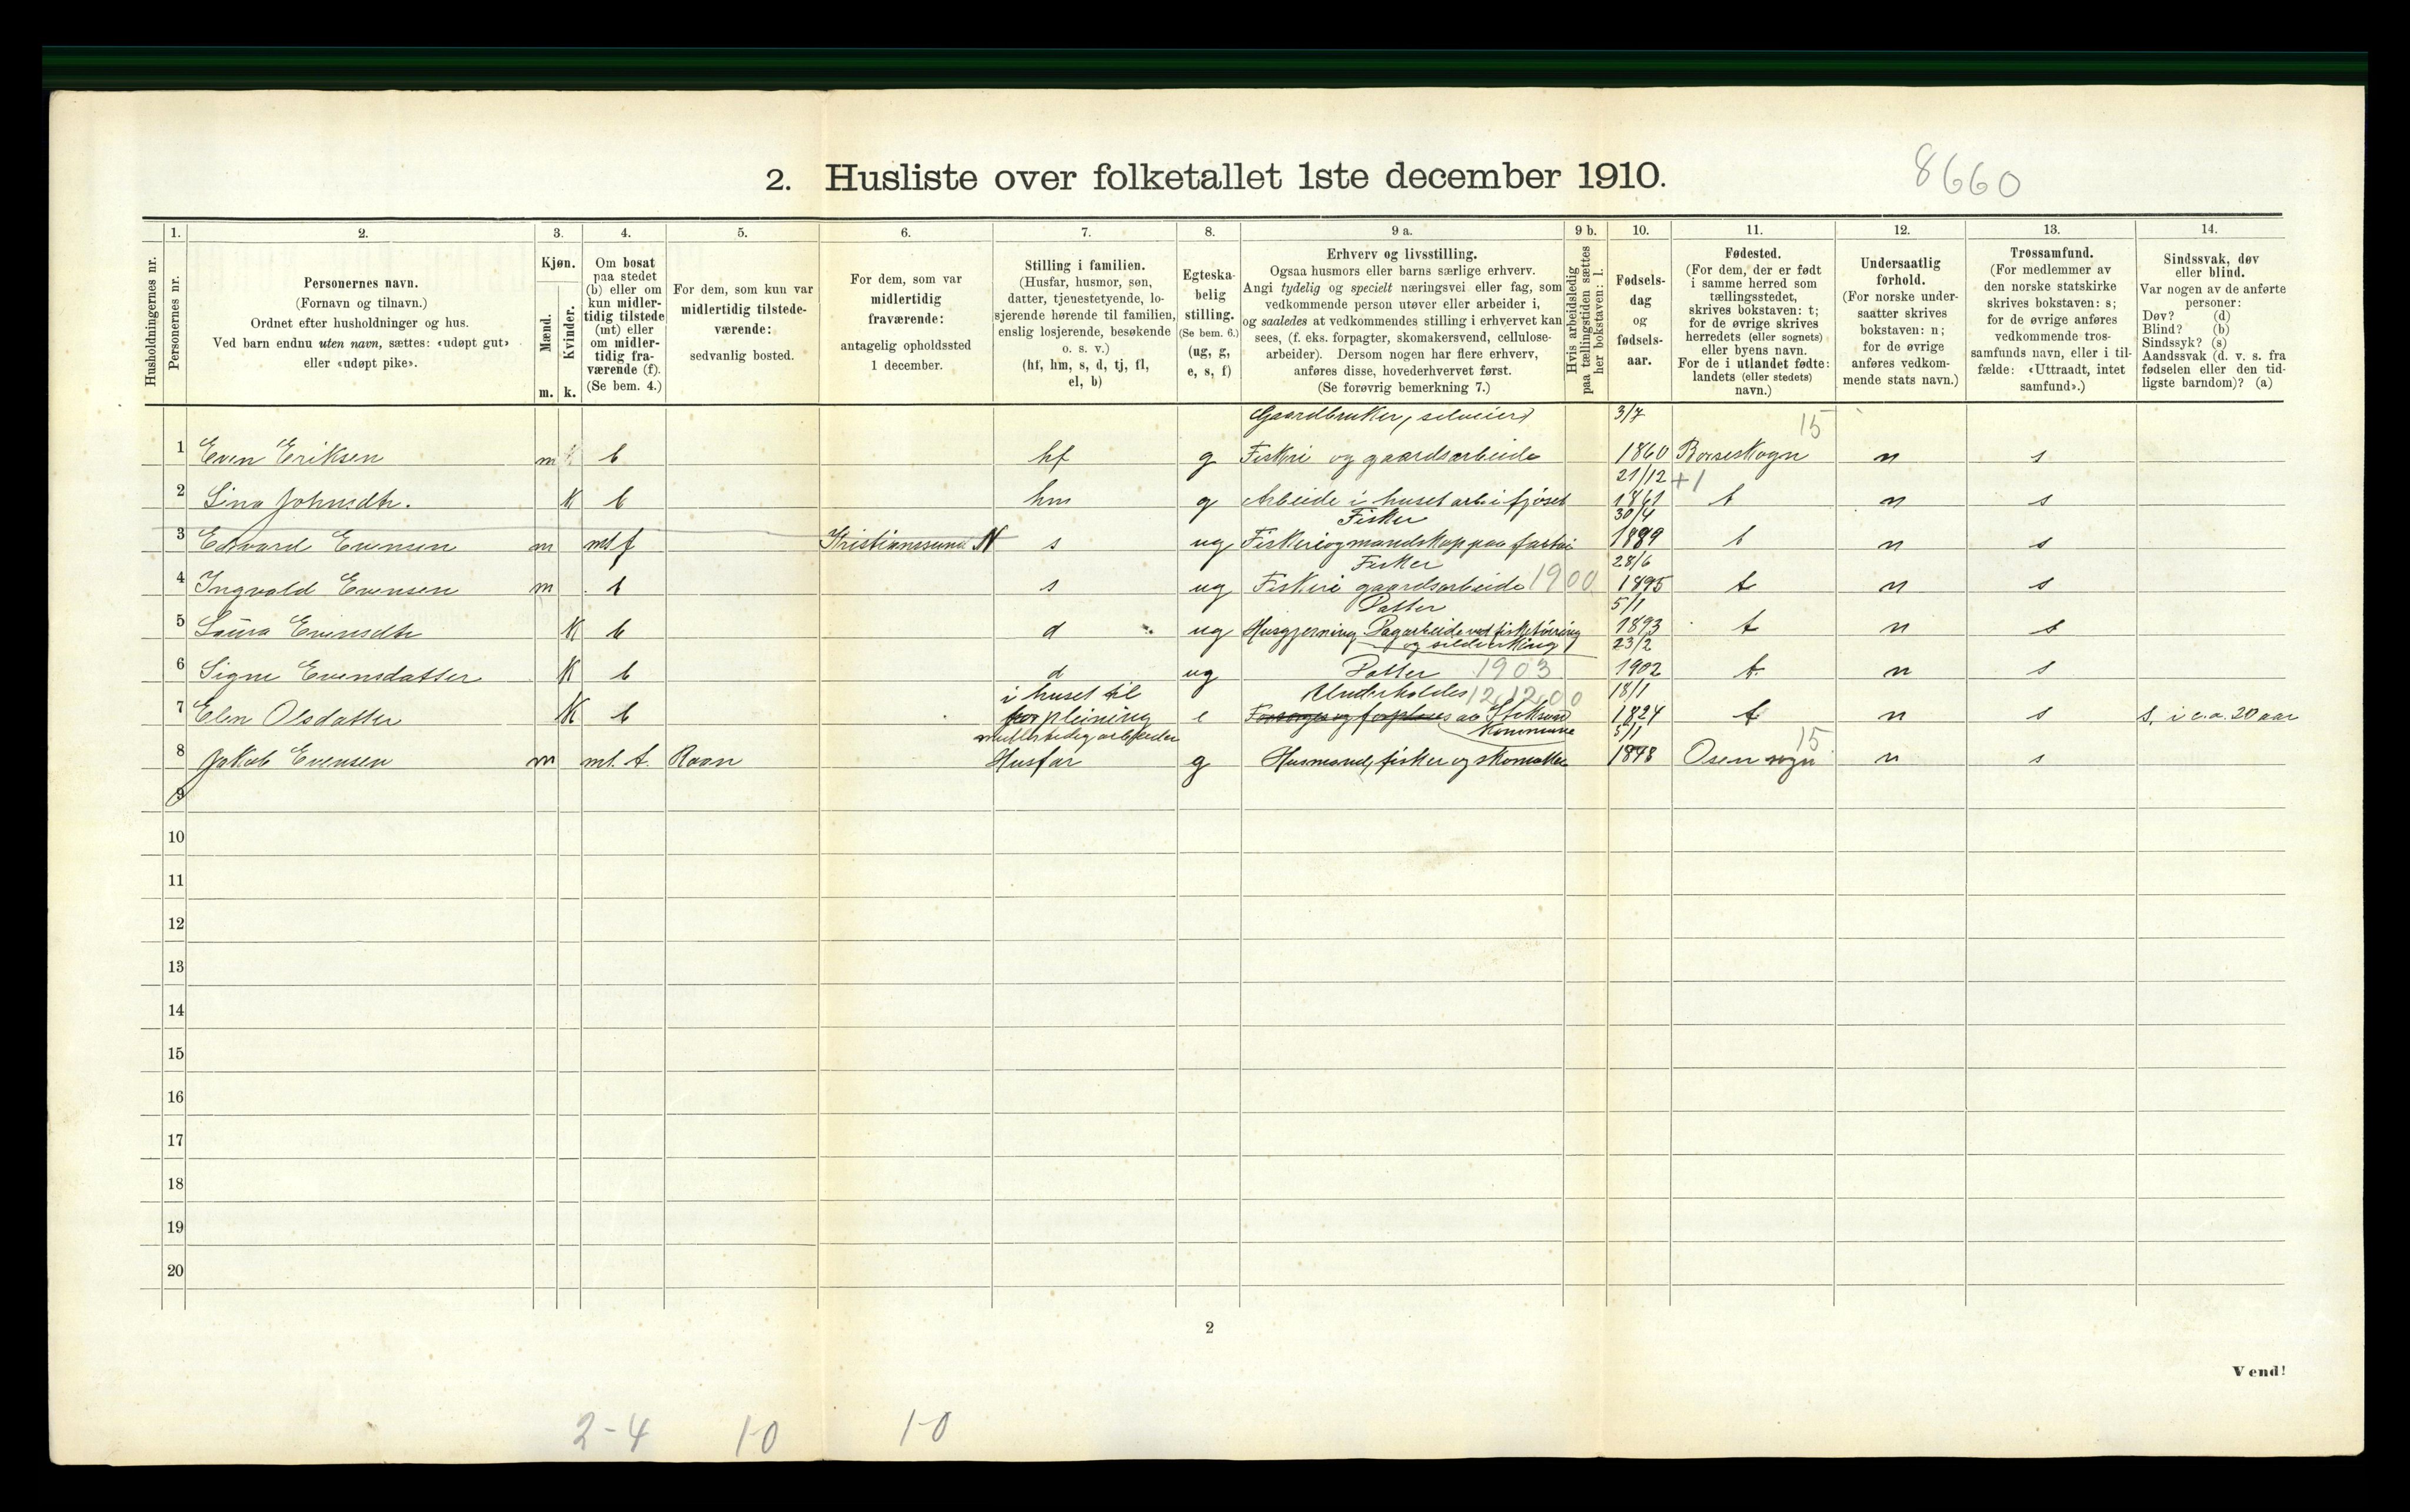 2. Husliste over folketallet 1ste december 1910.
8660
Husholdningernes nr.
1.
Personernes nr.
2.
Personernes navn.
(Fornavn og tilnavn.)
Ordnet efter husholdninger og hus.
Ved barn endnu uten navn, sættes: «udøpt gut»
eller «udøpt pike».
3.
Kjøn.
Mænd.
Kvinder.
m. k.
4.
Om bosat
paa stedet
(b) eller om
kun midler-
tidig tilstede
(mt) eller
om midler-
tidig fra-
værende (f).
(Se bem. 4.)
5.
For dem, som kun var
midlertidig tilstede-
værende:
sedvanlig bosted.
6.
For dem, som var
midlertidig
fraværende:
antagelig opholdssted
1 december.
7.
Stilling i familien.
(Husfar, husmor, søn,
datter, tjenestetyende, lo-
sjerende hørende til familien,
enslig losjerende, besøkende
o. s. v.)
(hf, hm, s, d, tj, fl,
el, b)
8.
Egteska-
belig
stilling.
(Se bem. 6.)
(ug, g,
e, s, f)
9 a.
Erhverv og livsstilling.
Ogsaa husmors eller barns særlige erhverv.
Angi tydelig og specielt næringsvei eller fag, som
vedkommende person utøver eller arbeider i,
og saaledes at vedkommendes stilling i erhvervet kan
sees, (f. eks. forpagter, skomakersvend, cellulose-
arbeider). Dersom nogen har flere erhverv,
anføres disse, hovederhvervet først.
(Se forøvrig bemerkning 7.)
9 b.
Hvis arbeidsledig
paa tællingstiden sættes
her bokstaven: l.
10.
Fødsels-
dag
og
fødsels-
aar.
11.
Fødested.
(For dem, der er født
i samme herred som
tællingsstedet,
skrives bokstaven: t;
for de øvrige skrives
herredets (eller sognets)
eller byens navn.
For de i utlandet fødte:
landets (eller stedets)
navn.)
12.
Undersaatlig
forhold.
(For norske under-
saatter skrives
bokstaven: n;
for de øvrige
anføres vedkom-
mende stats navn.)
13.
Trossamfund.
(For medlemmer av
den norske statskirke
skrives bokstaven: s;
for de øvrige anføres
vedkommende tros-
samfunds navn, eller i til-
fælde: «Uttraadt, intet
samfund».)
14.
Sindssvak, døv
eller blind.
Var nogen av de anførte
personer:
Døv? (d)
Blind? (b)
Sindssyk? (s)
Aandssvak (d. v. s. fra
fødselen eller den tid-
ligste barndom)? (a)
Gaardbruker, selveier 3/7 15
1 Even Eriksen m b hf g Fiskeri og gaardsarbeide 1860 Børseskogn n s
21/12 +1
2 Lina Johnsdtr. K b hm g Arbeide i huset arb. i fjøset 1861 t n s
Fisker 30/4
3 Edvard Evensen m mt f Kristianssund N s ug Fiskeri og mandskap paa fartøi 1889 t n s
Fisker 28/6
4 Ingvald Evensen m b s ug Fiskeri gaardsarbeide 1900 1895 t n s
Datter 5/1
5 Laura Evensdtr K b d ug Husgjerning Dagarbeide ved fisketørring 1893 t n s
og sildvirking 23/2
6 Signe Evensdatter K b d ug Datter 1903 1902 t n s
i huset til Underholdes 12.12.00 18/1
7 Elen Olsdatter K b forpleining e Forsørges og forpleies av Stoksund 1824 t n s s, i c.a. 20 aar
midlertidig arbeider Kommune 5/1 15
8 Jakob Evensen m mt. t. Raan Husfar g Husmand, fisker og skomaker 1878 Osen sogn n s
9
10
11
12
13
14
15
16
17
18
19
20
2
Vend!
2-4 1-0 1-0